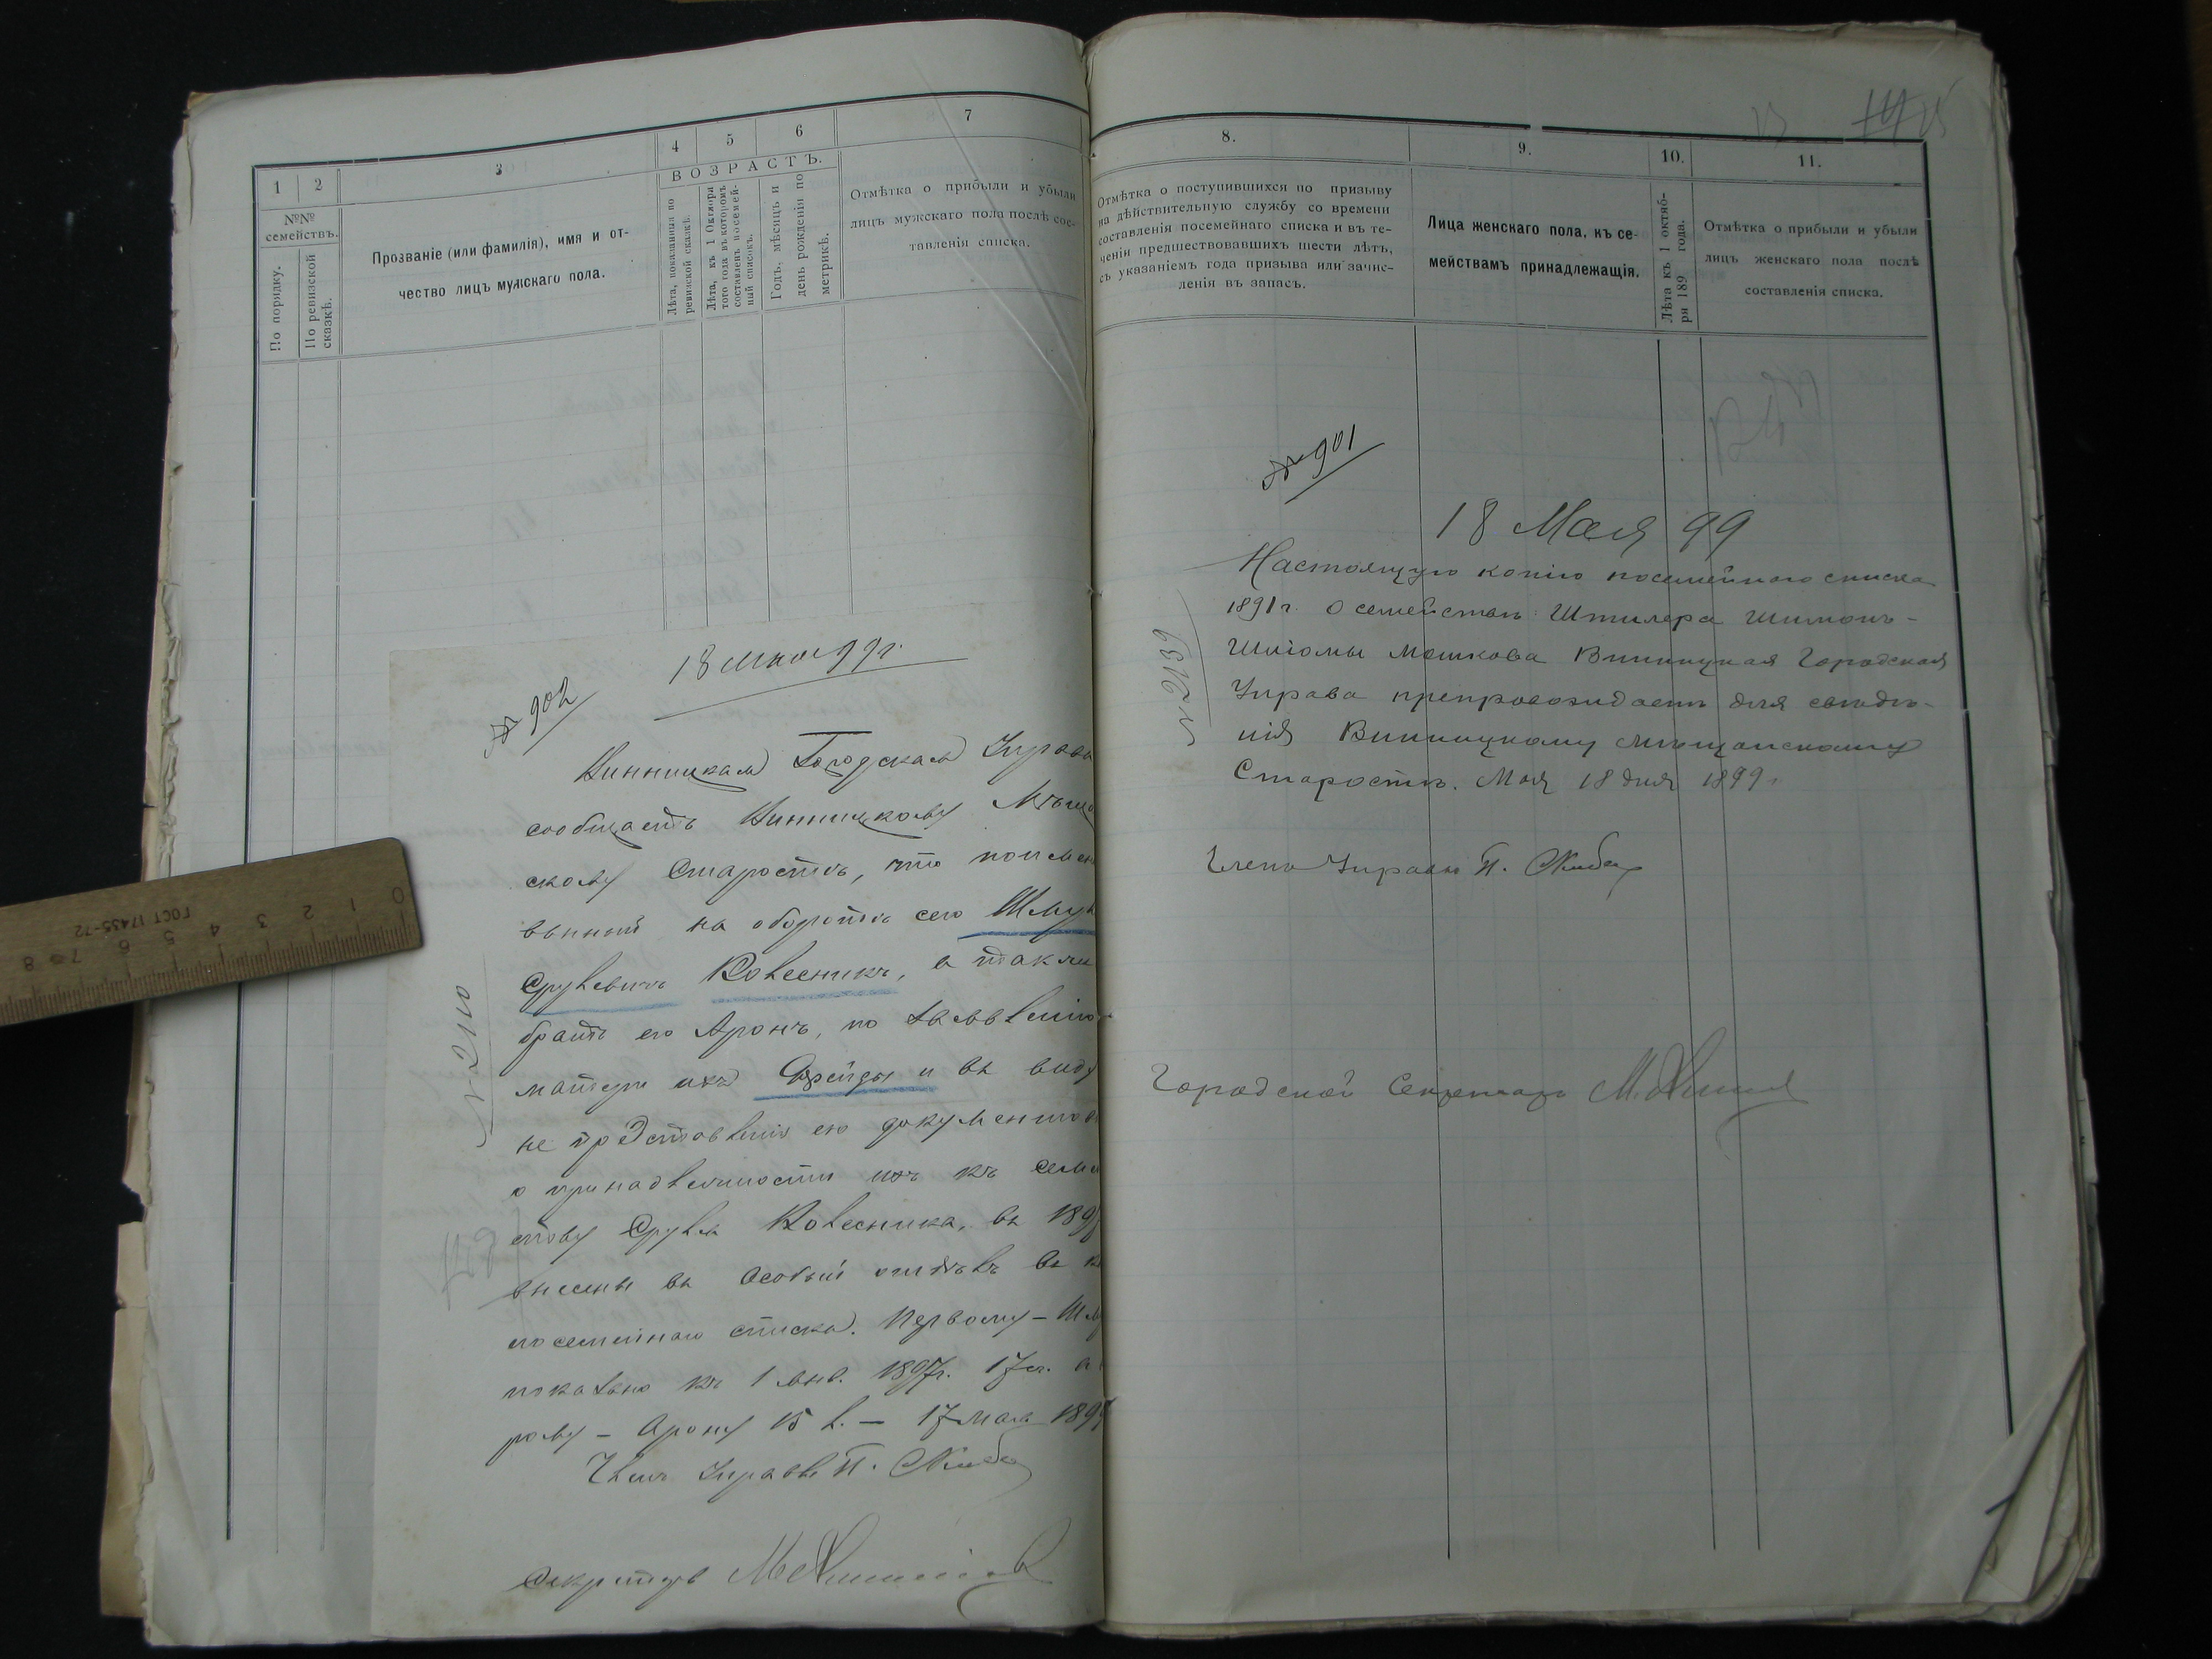 1
2
3
4
5
6
7
ВОЗРАСТЪ.
№№
семействъ.
По порядку.
По ревизской
сказкѣ.
Прозваніе (или фамилія), имя и от-
чество лицъ мужскаго пола.
Лѣта, показанныя по
ревизской сказкѣ.
Лѣта, къ 1 Октября
того года въ которомъ
составленъ посемей-
ный списокъ.
Годъ, мѣсяцъ и
день рожденія по
метрикѣ.
Отмѣтка о прибыли и убыли
лицъ мужскаго пола послѣ сос-
тавленія списка.
18 мая 99 г.
№ 902
Винницкая Городская Управа
сообщаетъ Винницкому Мѣща
скому Старостѣ, что поимен
ванный на оборотѣ сего Шмул
Срулевичъ Колесникъ, а также
братъ его Аронъ, по заявленію
матери ихъ Фрейды и въ виду
не представленія ею документов
о принадлежности ихъ къ семей
ству Сруля Колесника, въ 1897
внесены въ особый отдѣлъ
посемейнаго списка. Первому – Шм
показано къ 1 янв. 1897г. 17 л. а
рому – Арону 15 л. – 17 мая 189
Членъ Управы П. Скиба
Секретарь
№ 2110
0 1 2 3 4 5 6 7 8
ГОСТ 17435-72
8.
9.
10.
11.
Отмѣтка о поступившихся по призыву
на дѣйствительную службу со времени
составленія посемейнаго списка и въ те-
ченіи предшествовавшихъ шести лѣтъ,
съ указаніемъ года призыва или зачис-
ленія въ запасъ.
Лица женскаго пола, къ се-
мействамъ принадлежащія.
Лѣта къ 1 октяб-
ря 189 года.
Отмѣтка о прибыли и убыли
лицъ женскаго пола послѣ
составленія списка.
№ 901
18 Мая 99
Настоящую копію посемейнаго списка
1891 г. о семействѣ Штилера Шимонъ-
Шліомы Мошкова Винницкая Городская
Управа препровождаетъ для свѣдѣ-
нія Винницкому Мѣщанскому
Старостѣ. Мая 18 дня 1899 г.
№ 2139
Членъ Управы П. Скиба
Городской Секретарь